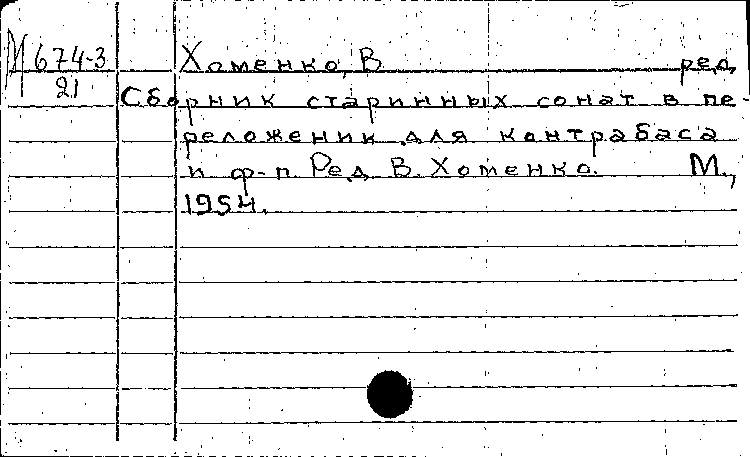 М 674-3 Хоменко, В. ред.
21 Сборник старинных сонат в пе-
реложении для контрабаса
и ф-п. Ред. В. Хоменко. М.,
1954.